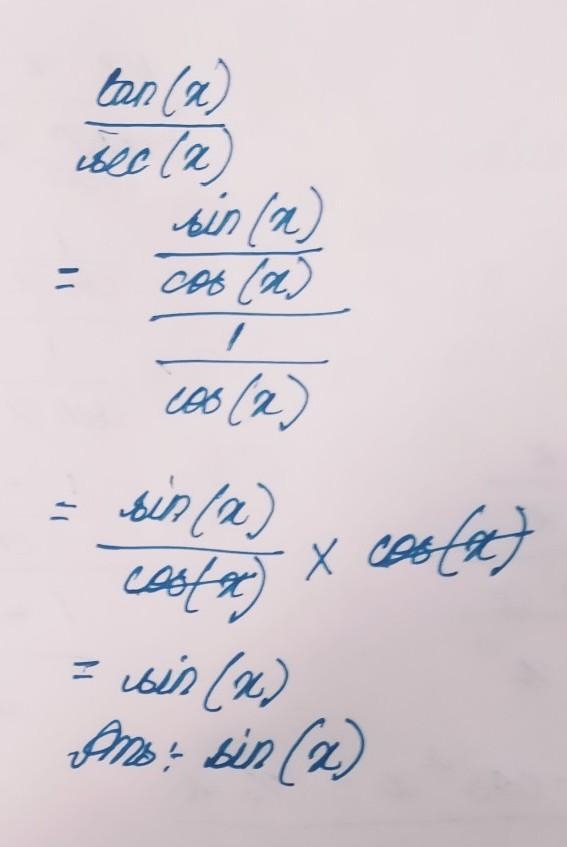 tan(x)
sec(x)
sin(x)
= cos(x)
1
cos(x)
= sin(x)
cos(x) × cos(x)
= sin(x)
Ans: sin(x)